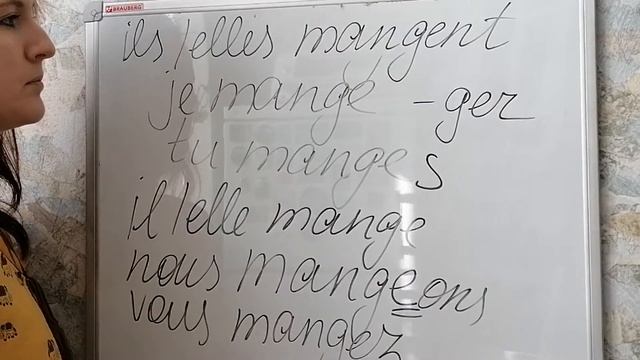 BRAUBERG
ils/elles mangent
je mange -ger
tu manges
il/elle mange
nous mangeons
vous mangez